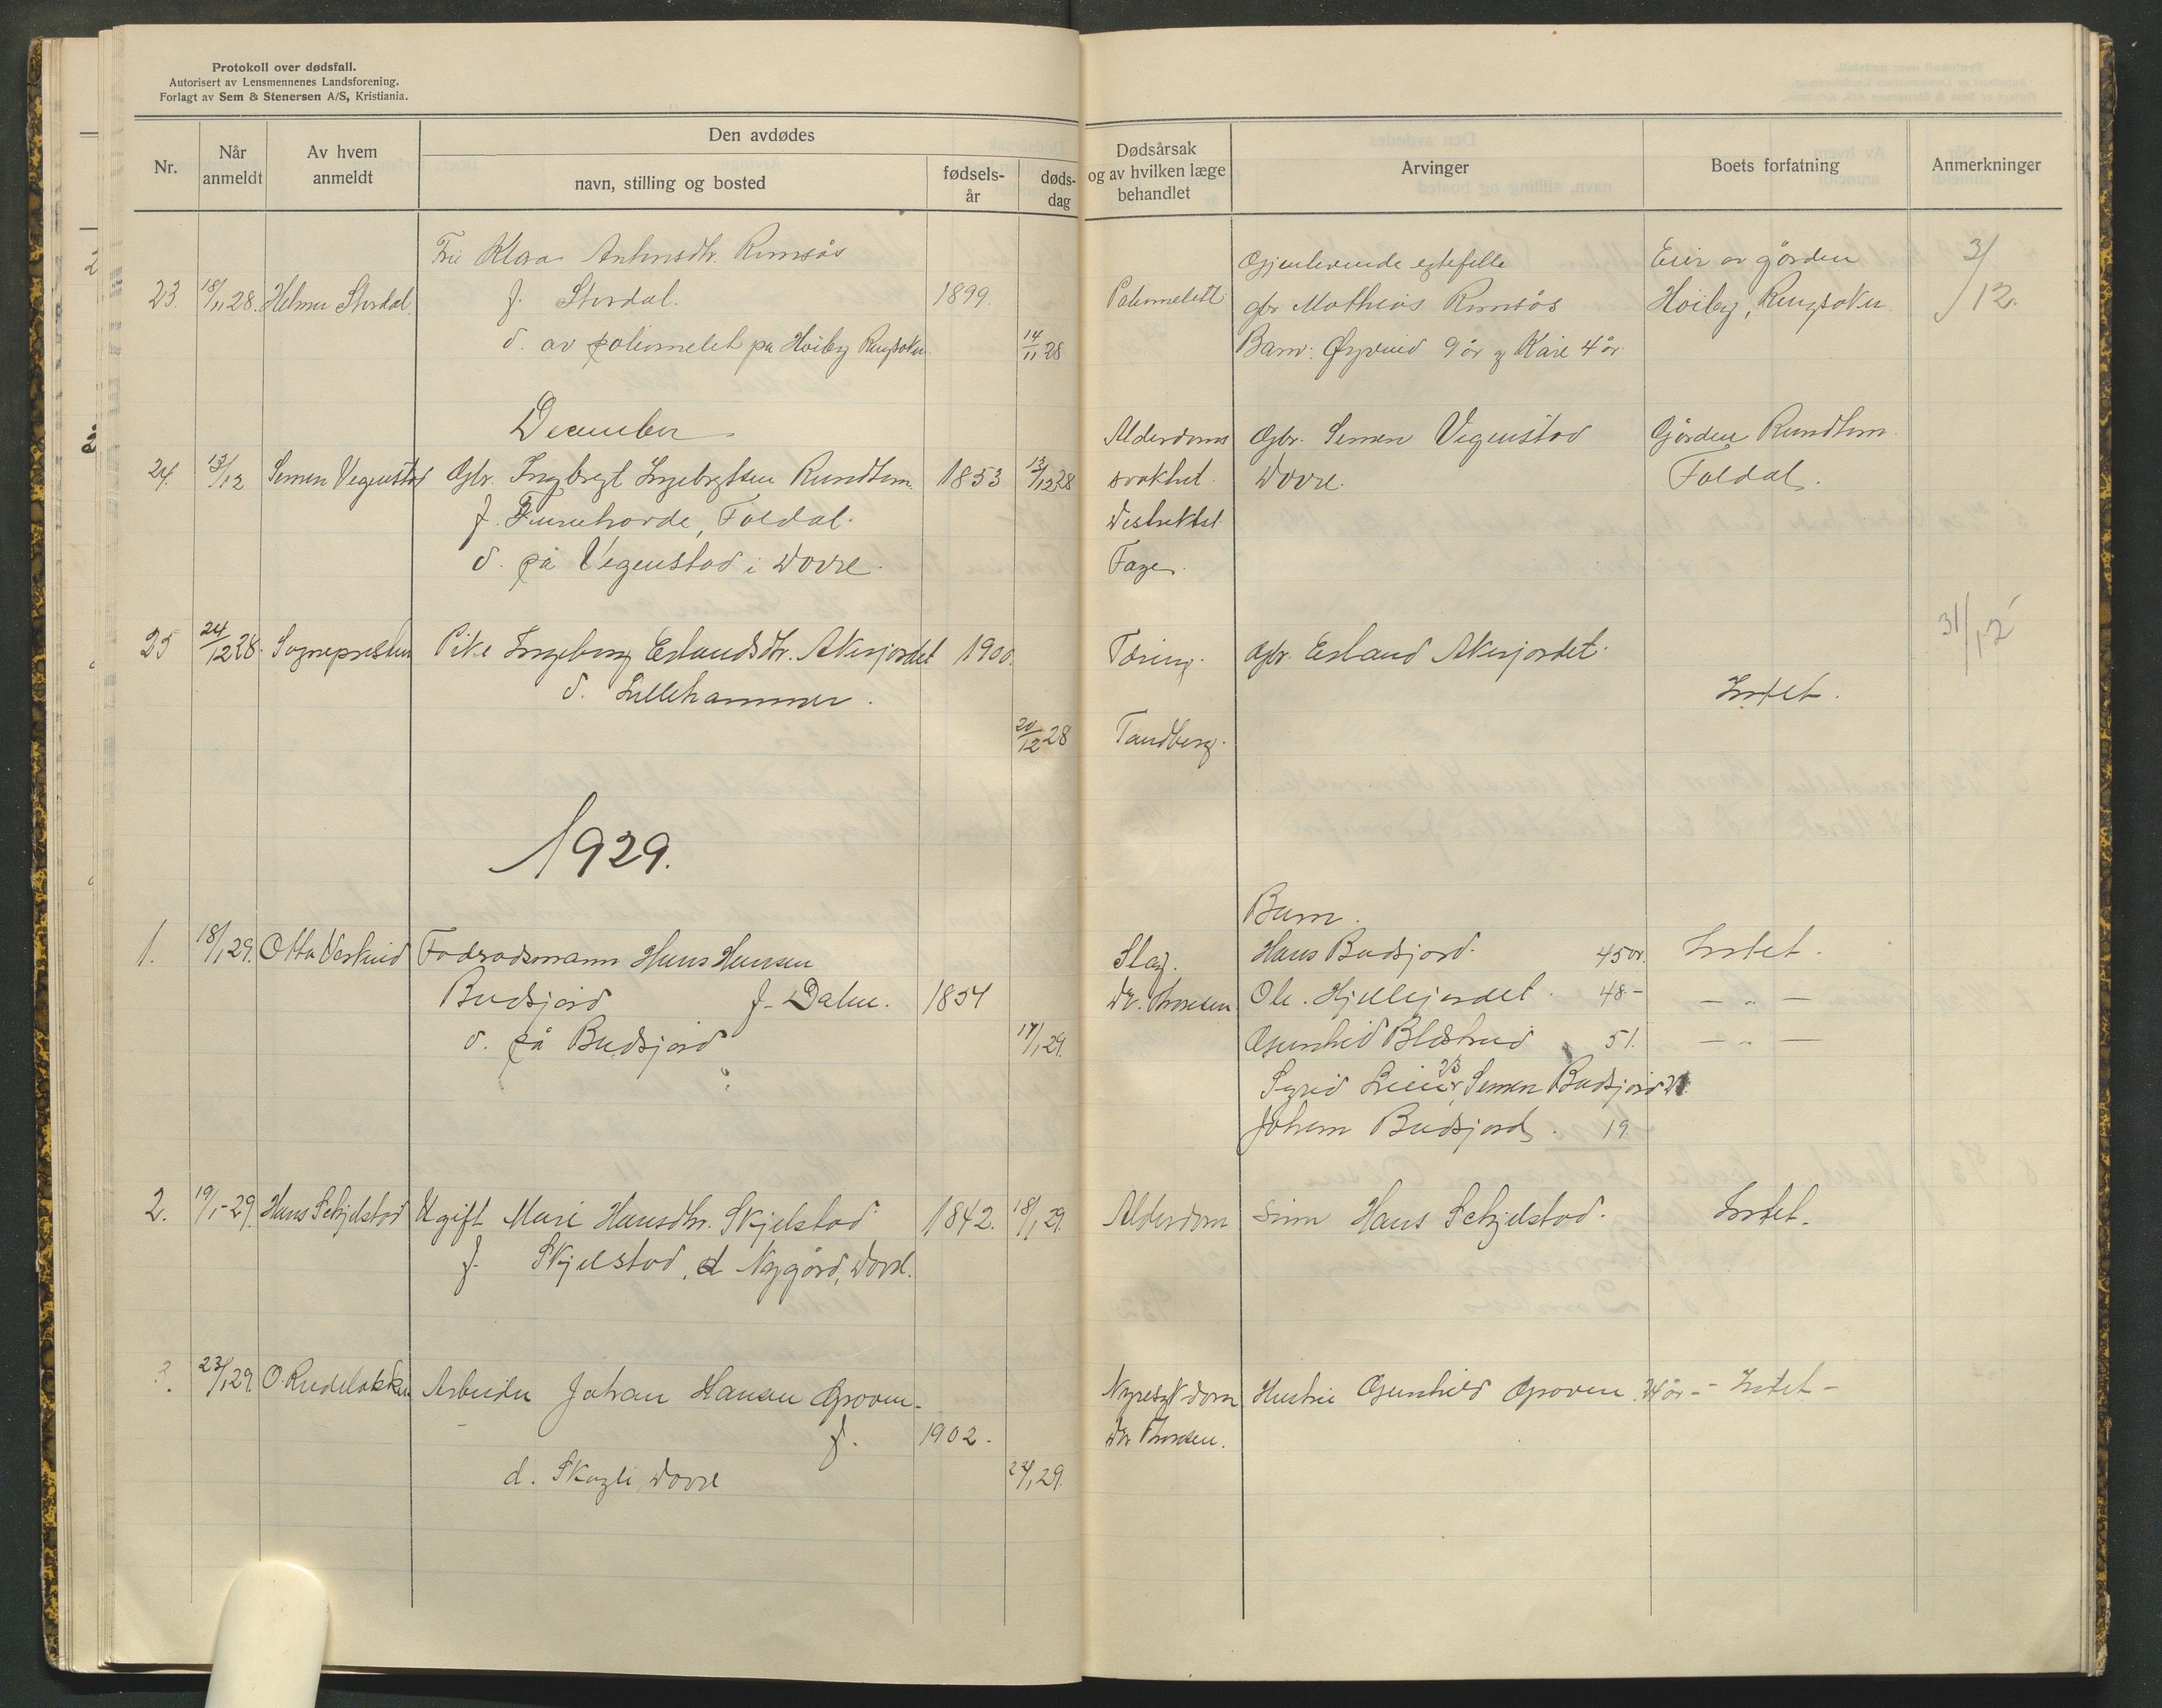 Protokoll over dødsfall.
Autorisert av Lensmennenes Landsforening.
Forlagt av Sem & Stenersen A/S, Kristiania.
Nr.
Når anmeldt
Av hvem anmeldt
Den avdødes
navn, stilling og bosted
fødsels-år
døds-dag
Dødsårsak og av hvilken læge behandlet
Arvinger
Boets forfatning
Anmerkninger
Fru Klara Antonsdtr. Rumsås
23. 18/11 28. Helmer Stordal f. Stordal. 1899.
d. av poliomelet på Høiby Ringsaker 14/11 28
Poliomelitt
Gjenlevende egtefelle
gbr Mathias Rumsås
Barn: Øyvind 9 år og Kåre 4 år
Eier av gården
Høiby, Ringsaker
3/12.
December
24. 13/12 Semen Vegenstad Gbr. Ingebrigt Ingebrigtsen Rundhom 1853 13/12 28
f. Furuhovde, Foldal.
d. på Vegenstad i Dovre.
Alderdoms
svakhet.
Distriktsl.
Gbr. Semen Vigenstad
Dovre.
Gården Rundhom
Foldal.
25 24/12 28. Sognepresten Pike Ingeborg Erlandsdtr. Akerjordet 1900.
d. Lillehammer.
20/12 28
Tæring.
Tandberg.
Gbr. Erland Akerjordet.
Intet.
31/12
1929.
1. 18/1 29. Otto Vestenid Fodradsmann Hans Hansen
Budsjord f. Dalen. 1854
d. på Budsjord 17/1 29.
Slag.
Dr. Thoresen
Barn.
Hans Budsjord. 45 år. Intet.
Ole Hjellejordet. 48.- — „ —
Gunhild Blæstrud 51. — „ —
Sigrid Lien, Semen Budsjord
Johan Budsjord. 19.
2. 19/1-29. Hans Schjelstad Ugift Mari Hansdtr. Skjelstad 1842. 18/1 29.
f. Skjelstad, d Nygård, Dovre.
Alderdom
Sønn Hans Schjelstad.
Intet.
3. 23/1 29. O. Rudiløkken Arbeider Johan Hansen Groven.
f. 1902.
d. Skogli, Dovre
22/1 29.
Nyresykdom
Dr Thoresen.
Hustru Gunhild Groven 24 år -- Intet -